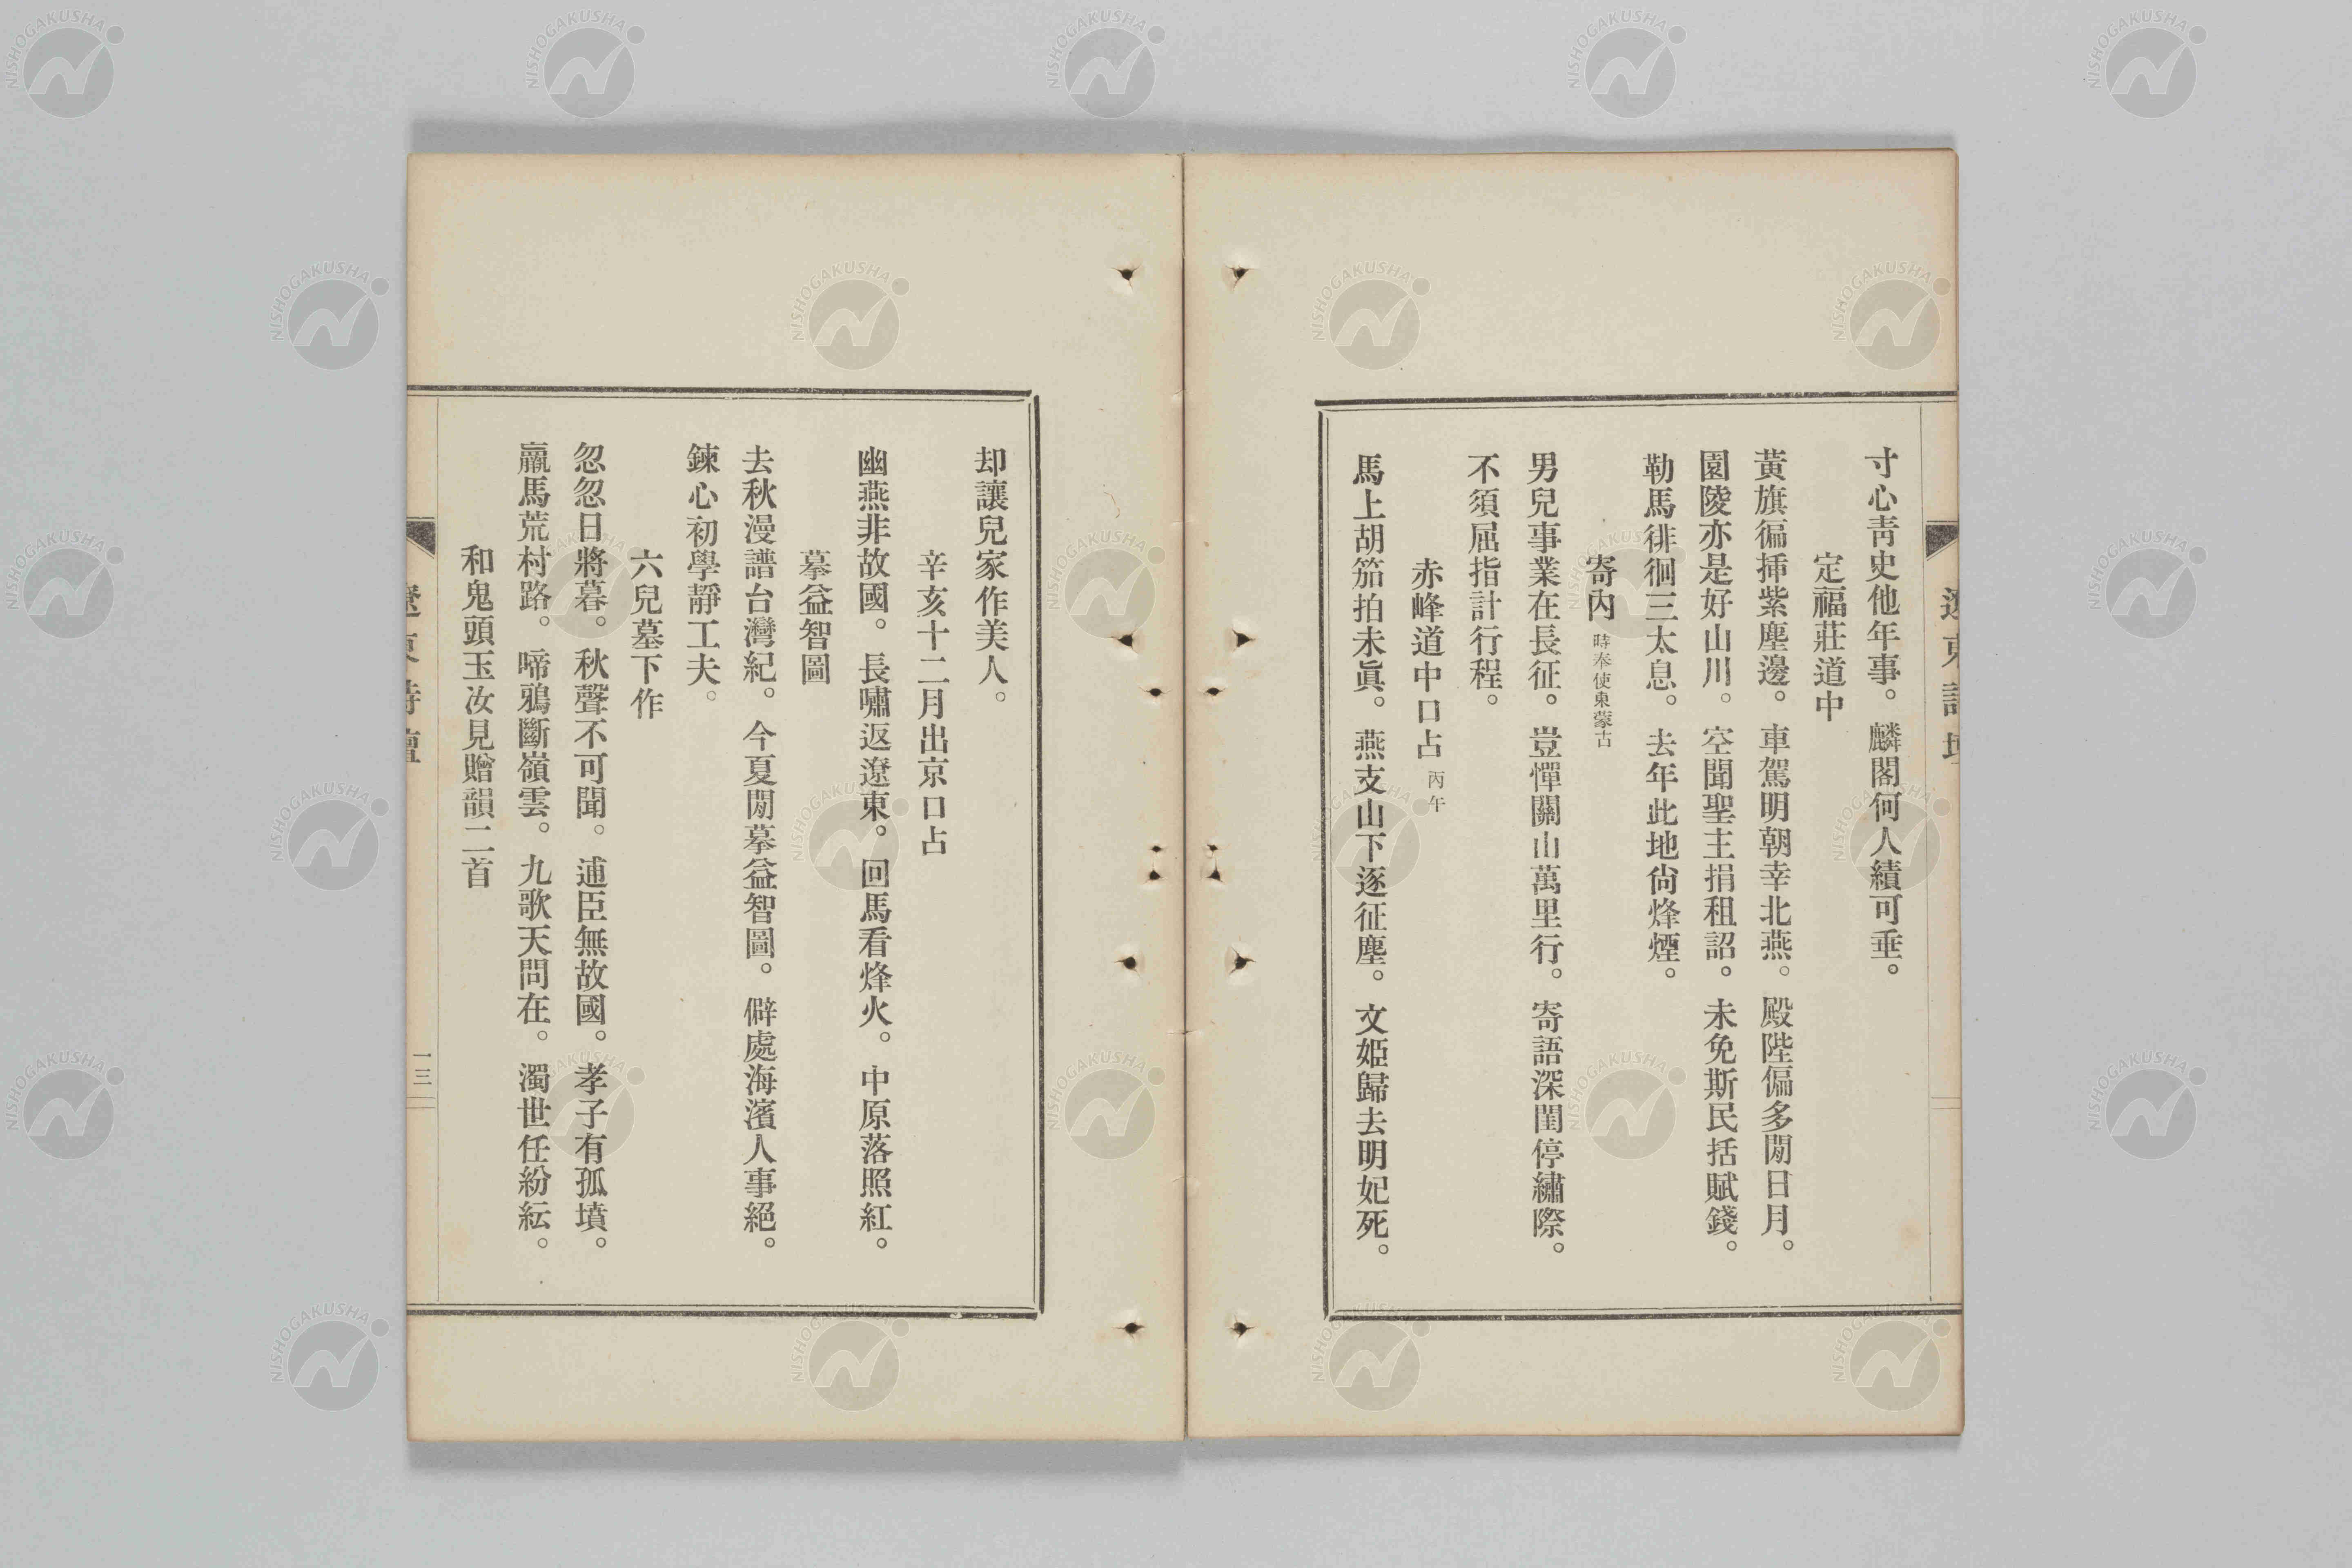 寸心靑史他年事。麟閣何人績可垂。
定福莊道中
黃旗徧揷紫塵邊。車駕明朝幸北燕。殿陛偏多閒日月。
園陵亦是好山川。空聞聖主捐租詔。未免斯民括賦錢。
勒馬徘徊三太息。去年此地尙烽煙。
寄內 時奉使東蒙古
男兒事業在長征。豈憚關山萬里行。寄語深閨停繡際。
不須屈指計行程。
赤峰道中口占 丙午
馬上胡笳拍未眞。燕支山下逐征塵。文姬歸去明妃死。
却讓兒家作美人。
辛亥十二月出京口占
幽燕非故國。長嘯返遼東。回馬看烽火。中原落照紅。
摹益智圖
去秋漫譜台灣紀。今夏閒摹益智圖。僻處海濱人事絕。
鍊心初學靜工夫。
六兒墓下作
忽忽日將暮。秋聲不可聞。逋臣無故國。孝子有孤墳。
羸馬荒村路。啼鴉斷嶺雲。九歌天問在。濁世任紛紜。
和鬼頭玉汝見贈韻二首
遼東詩壇
一三
NISHOGAKUSHA